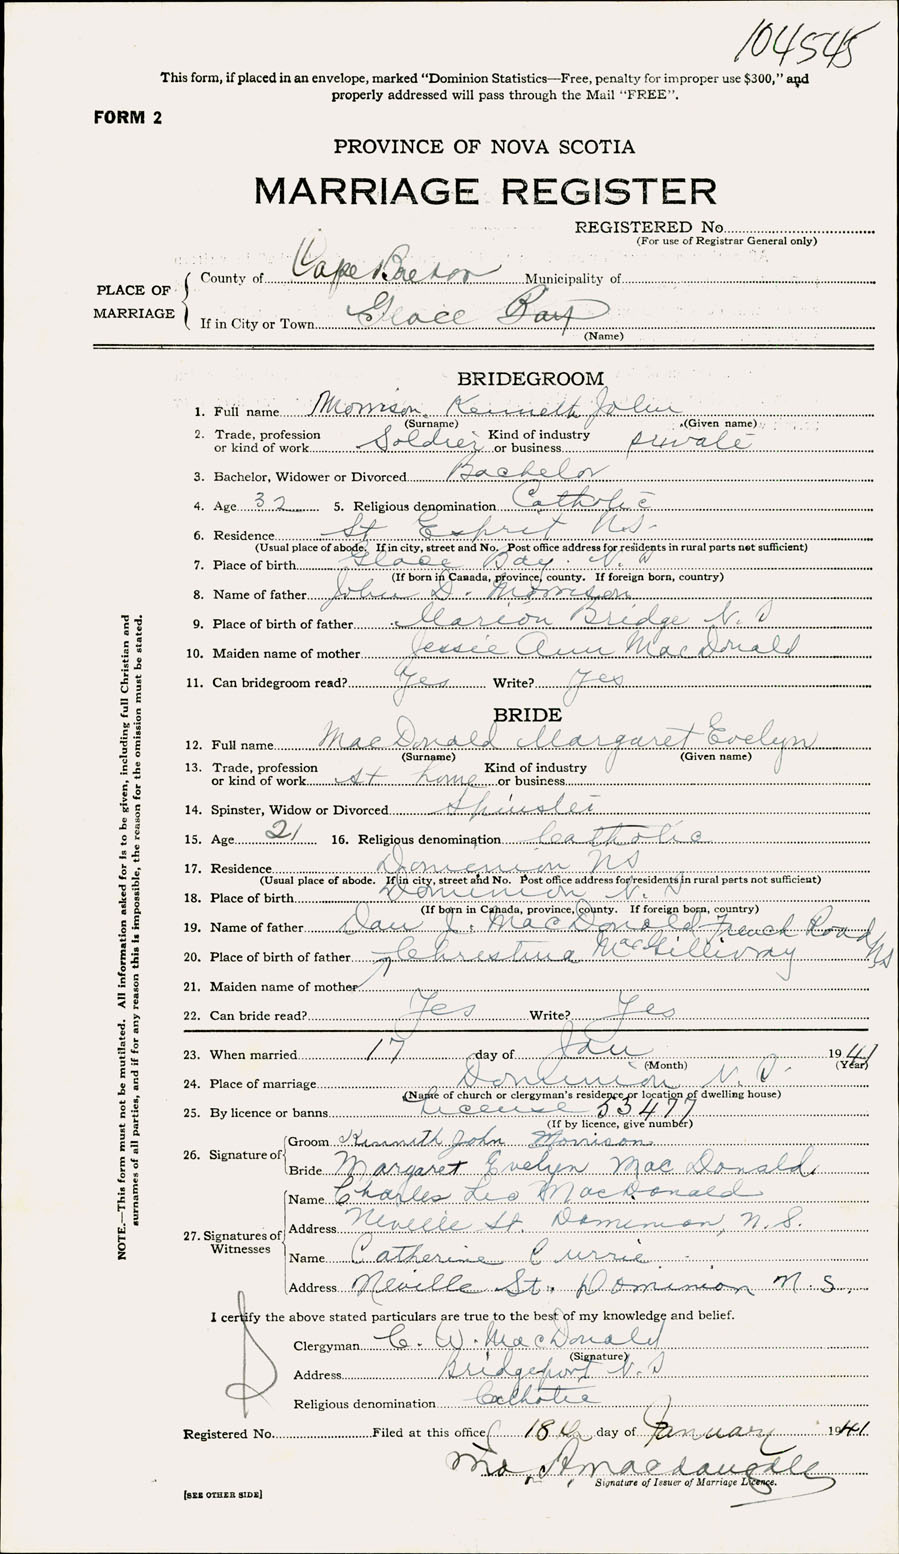 104545
This form, if placed in an envelope, marked "Dominion Statistics—Free, penalty for improper use $300," and
properly addressed will pass through the Mail "FREE".
FORM 2
PROVINCE OF NOVA SCOTIA
MARRIAGE REGISTER
REGISTERED No.
(For use of Registrar General only)
PLACE OF MARRIAGE
County of Cape Breton Municipality of
If in City or Town Glace Bay
(Name)
BRIDEGROOM
1. Full name Morrison Kenneth John
(Surname) (Given name)
2. Trade, profession or kind of work Soldier Kind of industry or business private
3. Bachelor, Widower or Divorced Bachelor
4. Age 32 5. Religious denomination Catholic
6. Residence St Esprit N.S.
(Usual place of abode. If in city, street and No. Post office address for residents in rural parts not sufficient)
7. Place of birth Glace Bay. N.S
(If born in Canada, province, county. If foreign born, country)
8. Name of father John D. Morrison
9. Place of birth of father Marion Bridge N.S
10. Maiden name of mother Jessie Ann MacDonald
11. Can bridegroom read? Yes Write? Yes
BRIDE
12. Full name MacDonald Margaret Evelyn
(Surname) (Given name)
13. Trade, profession or kind of work At home Kind of industry or business
14. Spinster, Widow or Divorced Spinster
15. Age 21 16. Religious denomination Catholic
17. Residence Dominion NS
(Usual place of abode. If in city, street and No. Post office address for residents in rural parts not sufficient)
18. Place of birth Dominion N.S
(If born in Canada, province, county. If foreign born, country)
19. Name of father Dan J. MacDonald French Road NS
20. Place of birth of father Christina McGillivray
21. Maiden name of mother
22. Can bride read? Yes Write? Yes
23. When married 17 day of Jan 1941
(Month) (Year)
24. Place of marriage Dominion N.S.
(Name of church or clergyman's residence or location of dwelling house)
25. By licence or banns License 53477
(If by licence, give number)
26. Signature of Groom Kenneth John Morrison
Bride Margaret Evelyn MacDonald
27. Signatures of Witnesses Name Charles Leo MacDonald
Address Neville St. Dominion, N.S.
Name Catherine Currie
Address Neville St. Dominion N.S.
I certify the above stated particulars are true to the best of my knowledge and belief.
Clergyman C. W. MacDonald
(Signature)
Address Bridgeport N.S
Religious denomination Catholic
Registered No. Filed at this office 18th day of January 1941
Mrs A. Macdougall
Signature of Issuer of Marriage Licence.
[SEE OTHER SIDE]
NOTE.—This form must not be mutilated. All information asked for is to be given, including full Christian and
surnames of all parties, and if for any reason this is impossible, the reason for the omission must be stated.